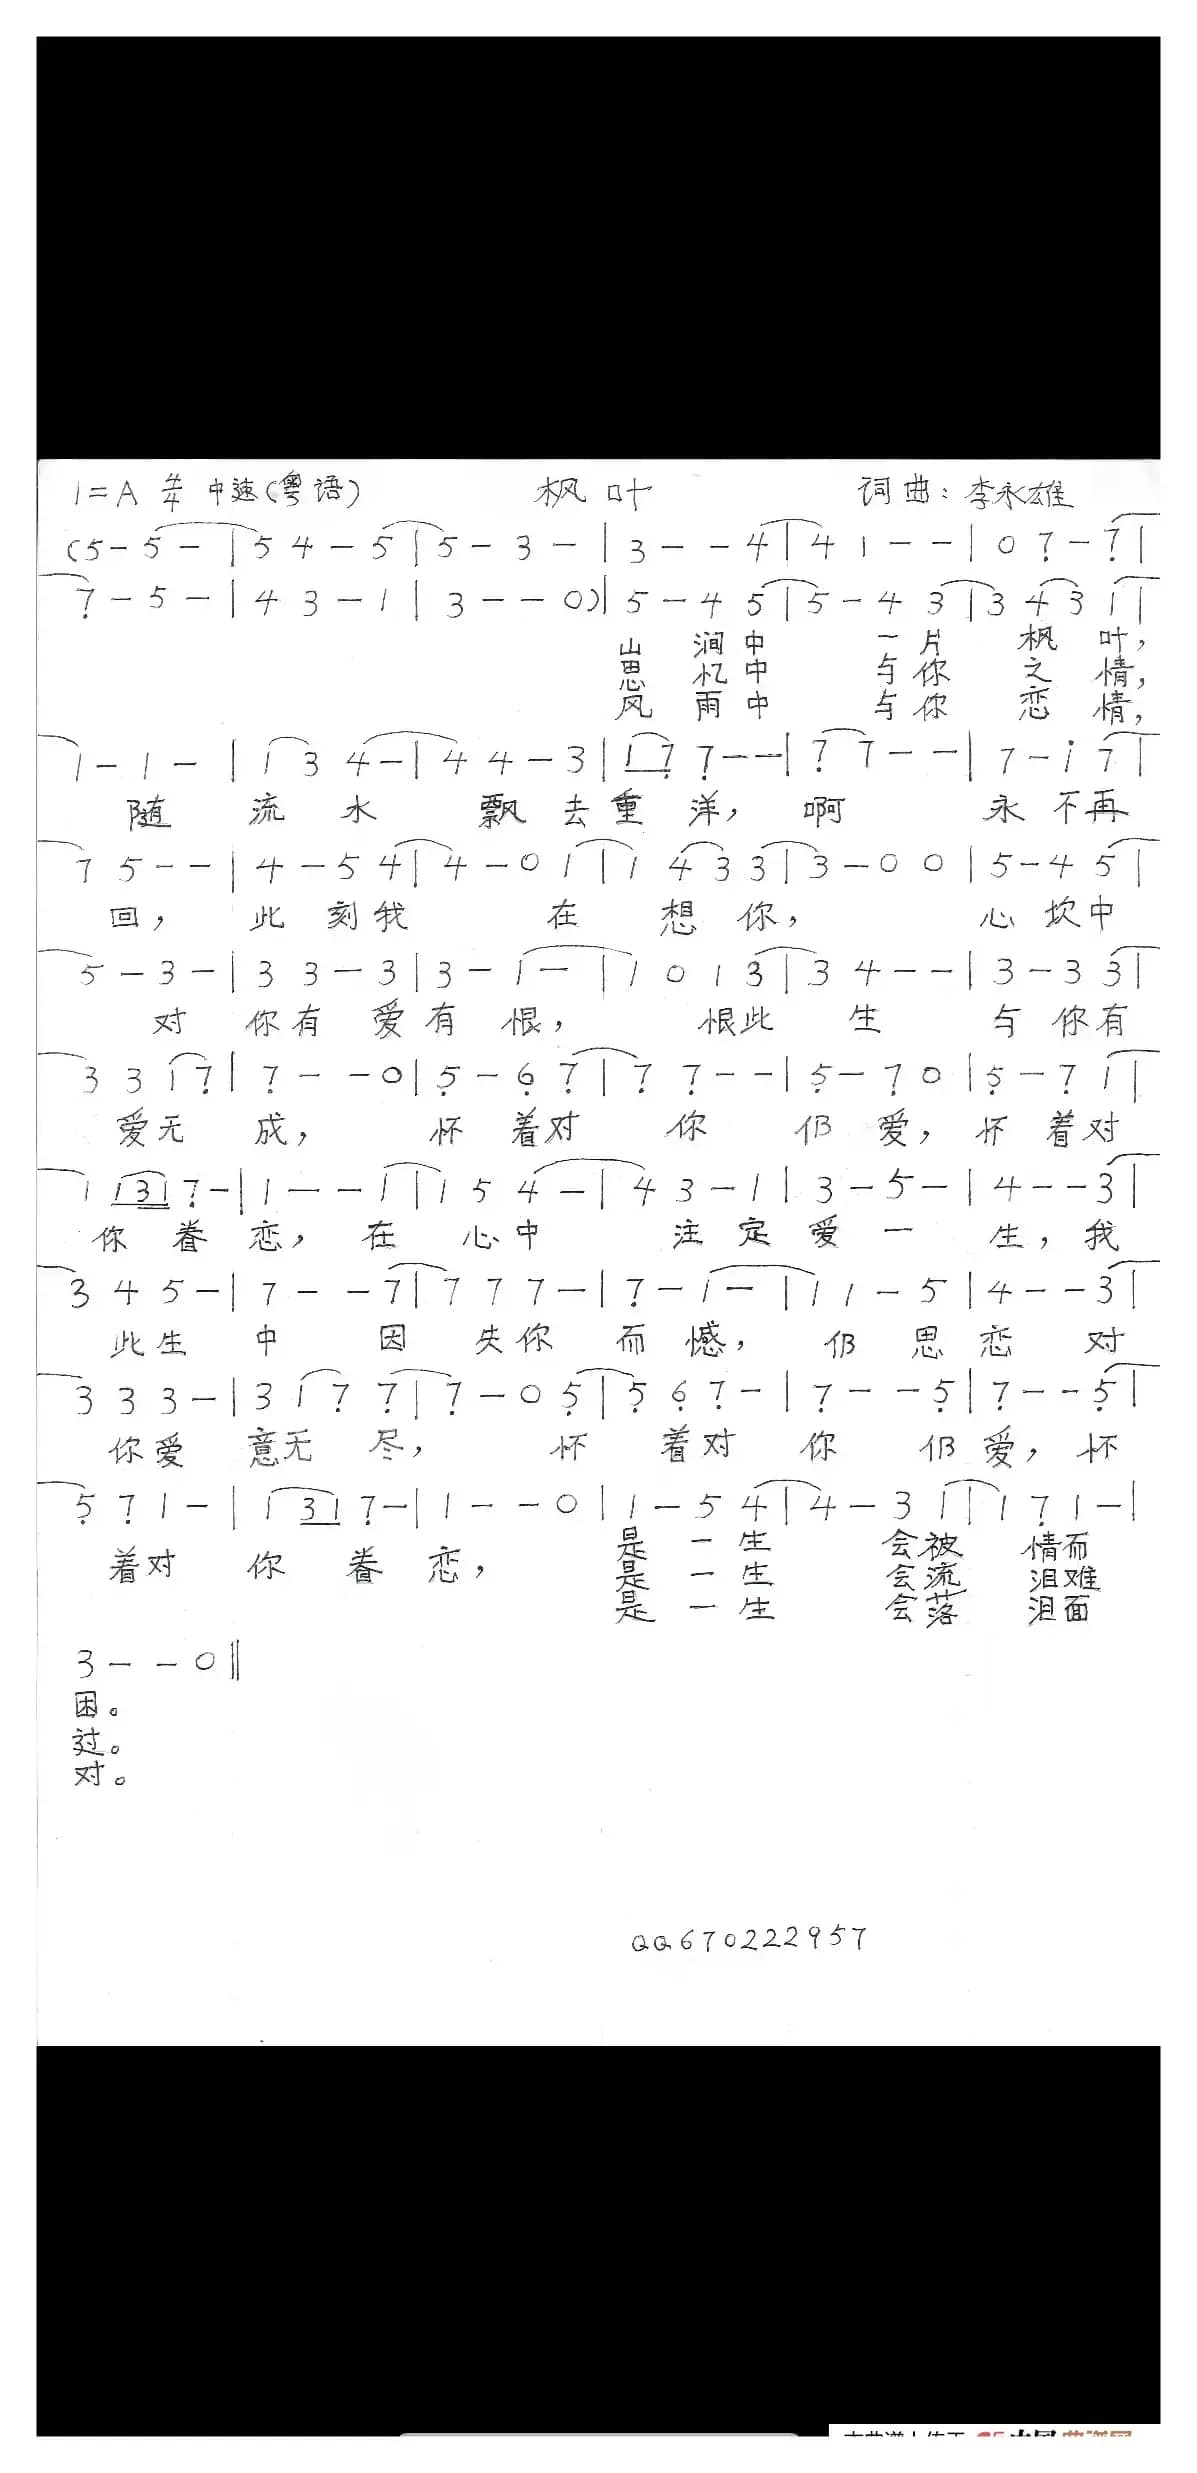 1=A 4/4 中速(粤语) 枫叶 词曲:李永雄
(5-5-|54-5|5-3-|3--4|41--|07-7|
7-5-|43-1|3--0)|5-45|5-43|3431|
山涧中一片枫叶,
思忆中与你之情,
风雨中与你恋情,
1-1-|134-|44-3|177--|77--|7-i7|
随流水飘去重洋,啊永不再
75--|4-54|4-01|1433|3-00|5-45|
回,此刻我在想你,心坎中
5-3-|33-3|3-1-|1013|34--|3-33|
对你有爱有恨,恨此生与你有
3317|7--0|5-67|77--|5-70|5-71|
爱无成,怀着对你仍爱,怀着对
11317-|1--1|154-|43-1|3-5-|4--3|
你眷恋,在心中注定爱一生,我
345-|7--7|777-|7-1-|11-5|4--3|
此生中因失你而憾,仍思恋对
333-|3177|7-05|567-|7--5|7--5|
你爱意无尽,怀着对你仍爱,怀
571-|1317-|1--0|1-54|4-31|171-|
着对你眷恋,是一生会被情而
是一生会流泪难
是一生会落泪面
3--0‖
困。
过。
对。
QQ670222957